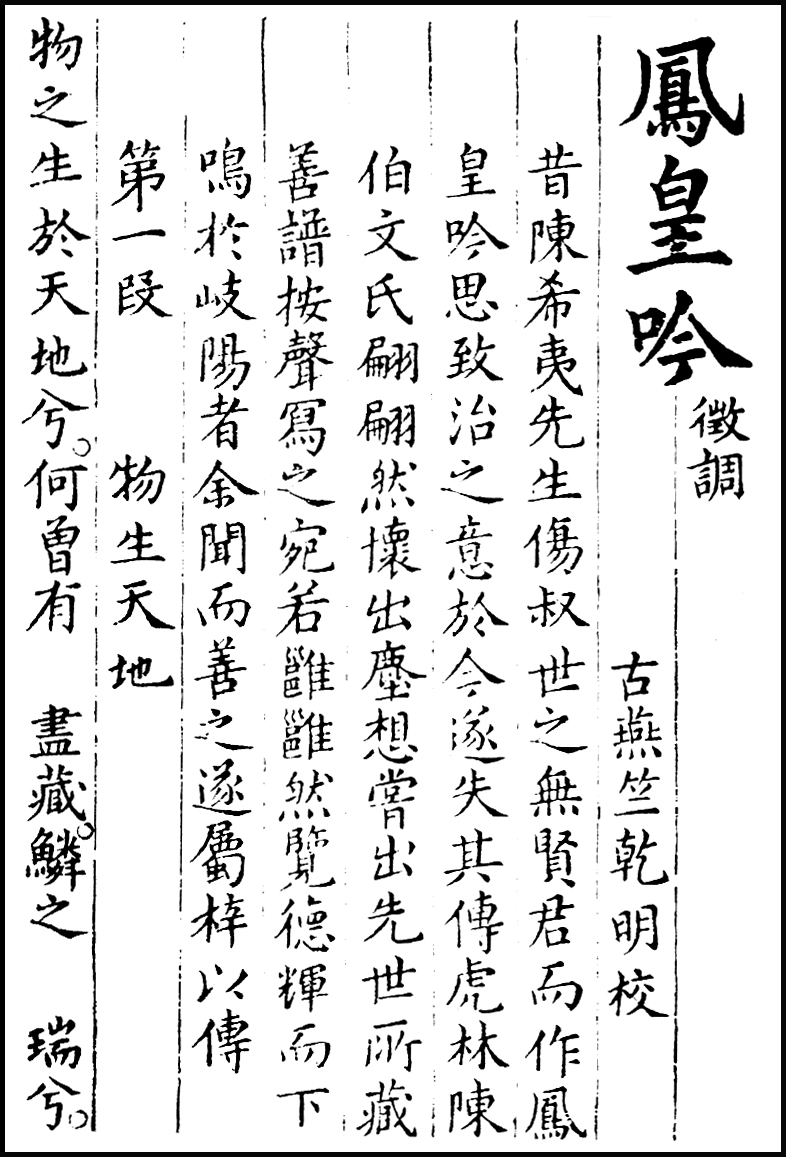 鳳皇吟 徵調
古燕竺乾明校
昔陳希夷先生傷叔世之無賢君而作鳳
皇吟思致治之意於今遂失其傳虎林陳
伯文氏翩翩然壞出塵想嘗出先世所藏
善譜按聲寫之宛若雝雝然覽德輝而下
鳴於岐陽者余聞而善之遂屬梓以傳
第一段 物生天地
物之生於天地兮。何曾有 盡藏。鱗之 瑞兮。